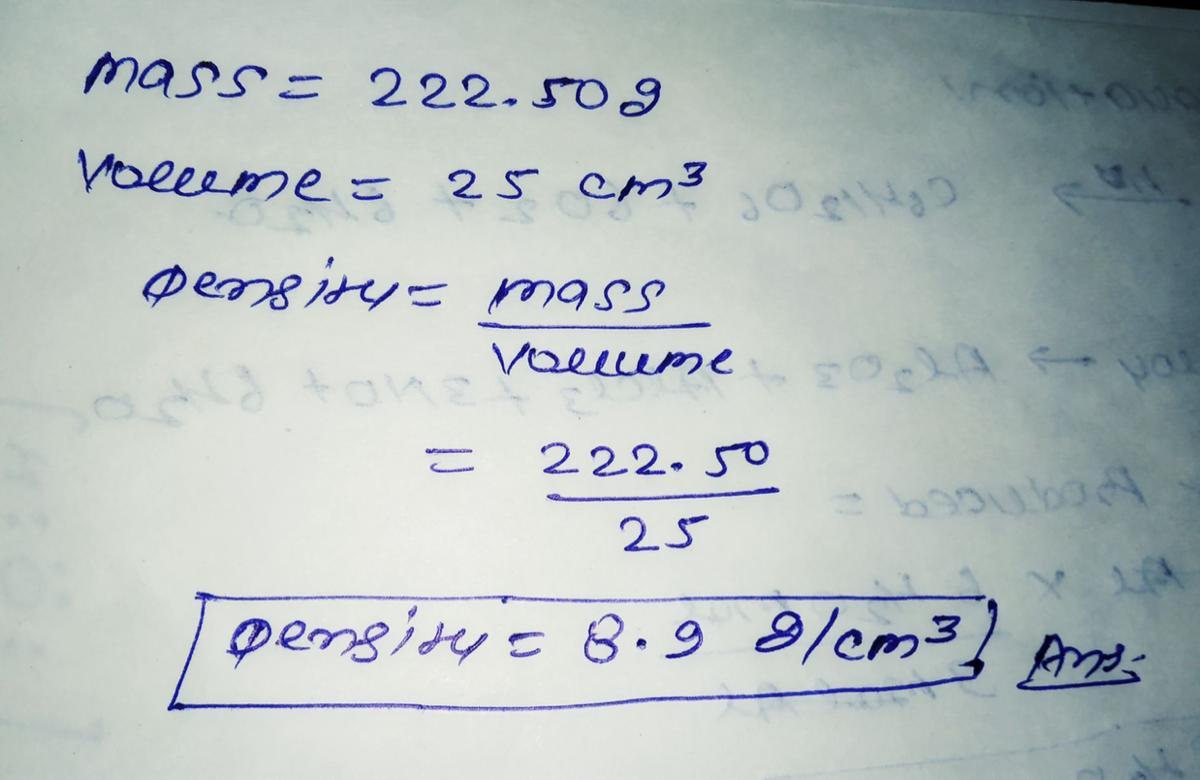 mass = 222.50g
Volume = 25 cm³
Density = mass
Volume
= 222.50
25
Density = 8.9 g/cm³ Ans: